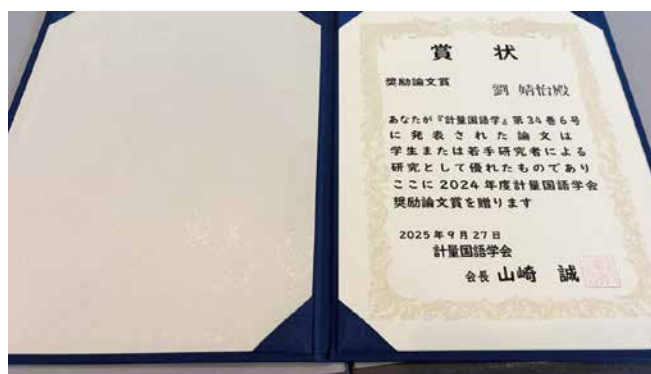 賞 状
奨励論文賞
劉 婧怡殿
あなたが『計量国語学』第34巻6号
に発表された論文は
学生または若手研究者による
研究として優れたものであり
ここに2024年度計量国語学会
奨励論文賞を贈ります
2025年9月27日
計量国語学会
会長 山崎 誠